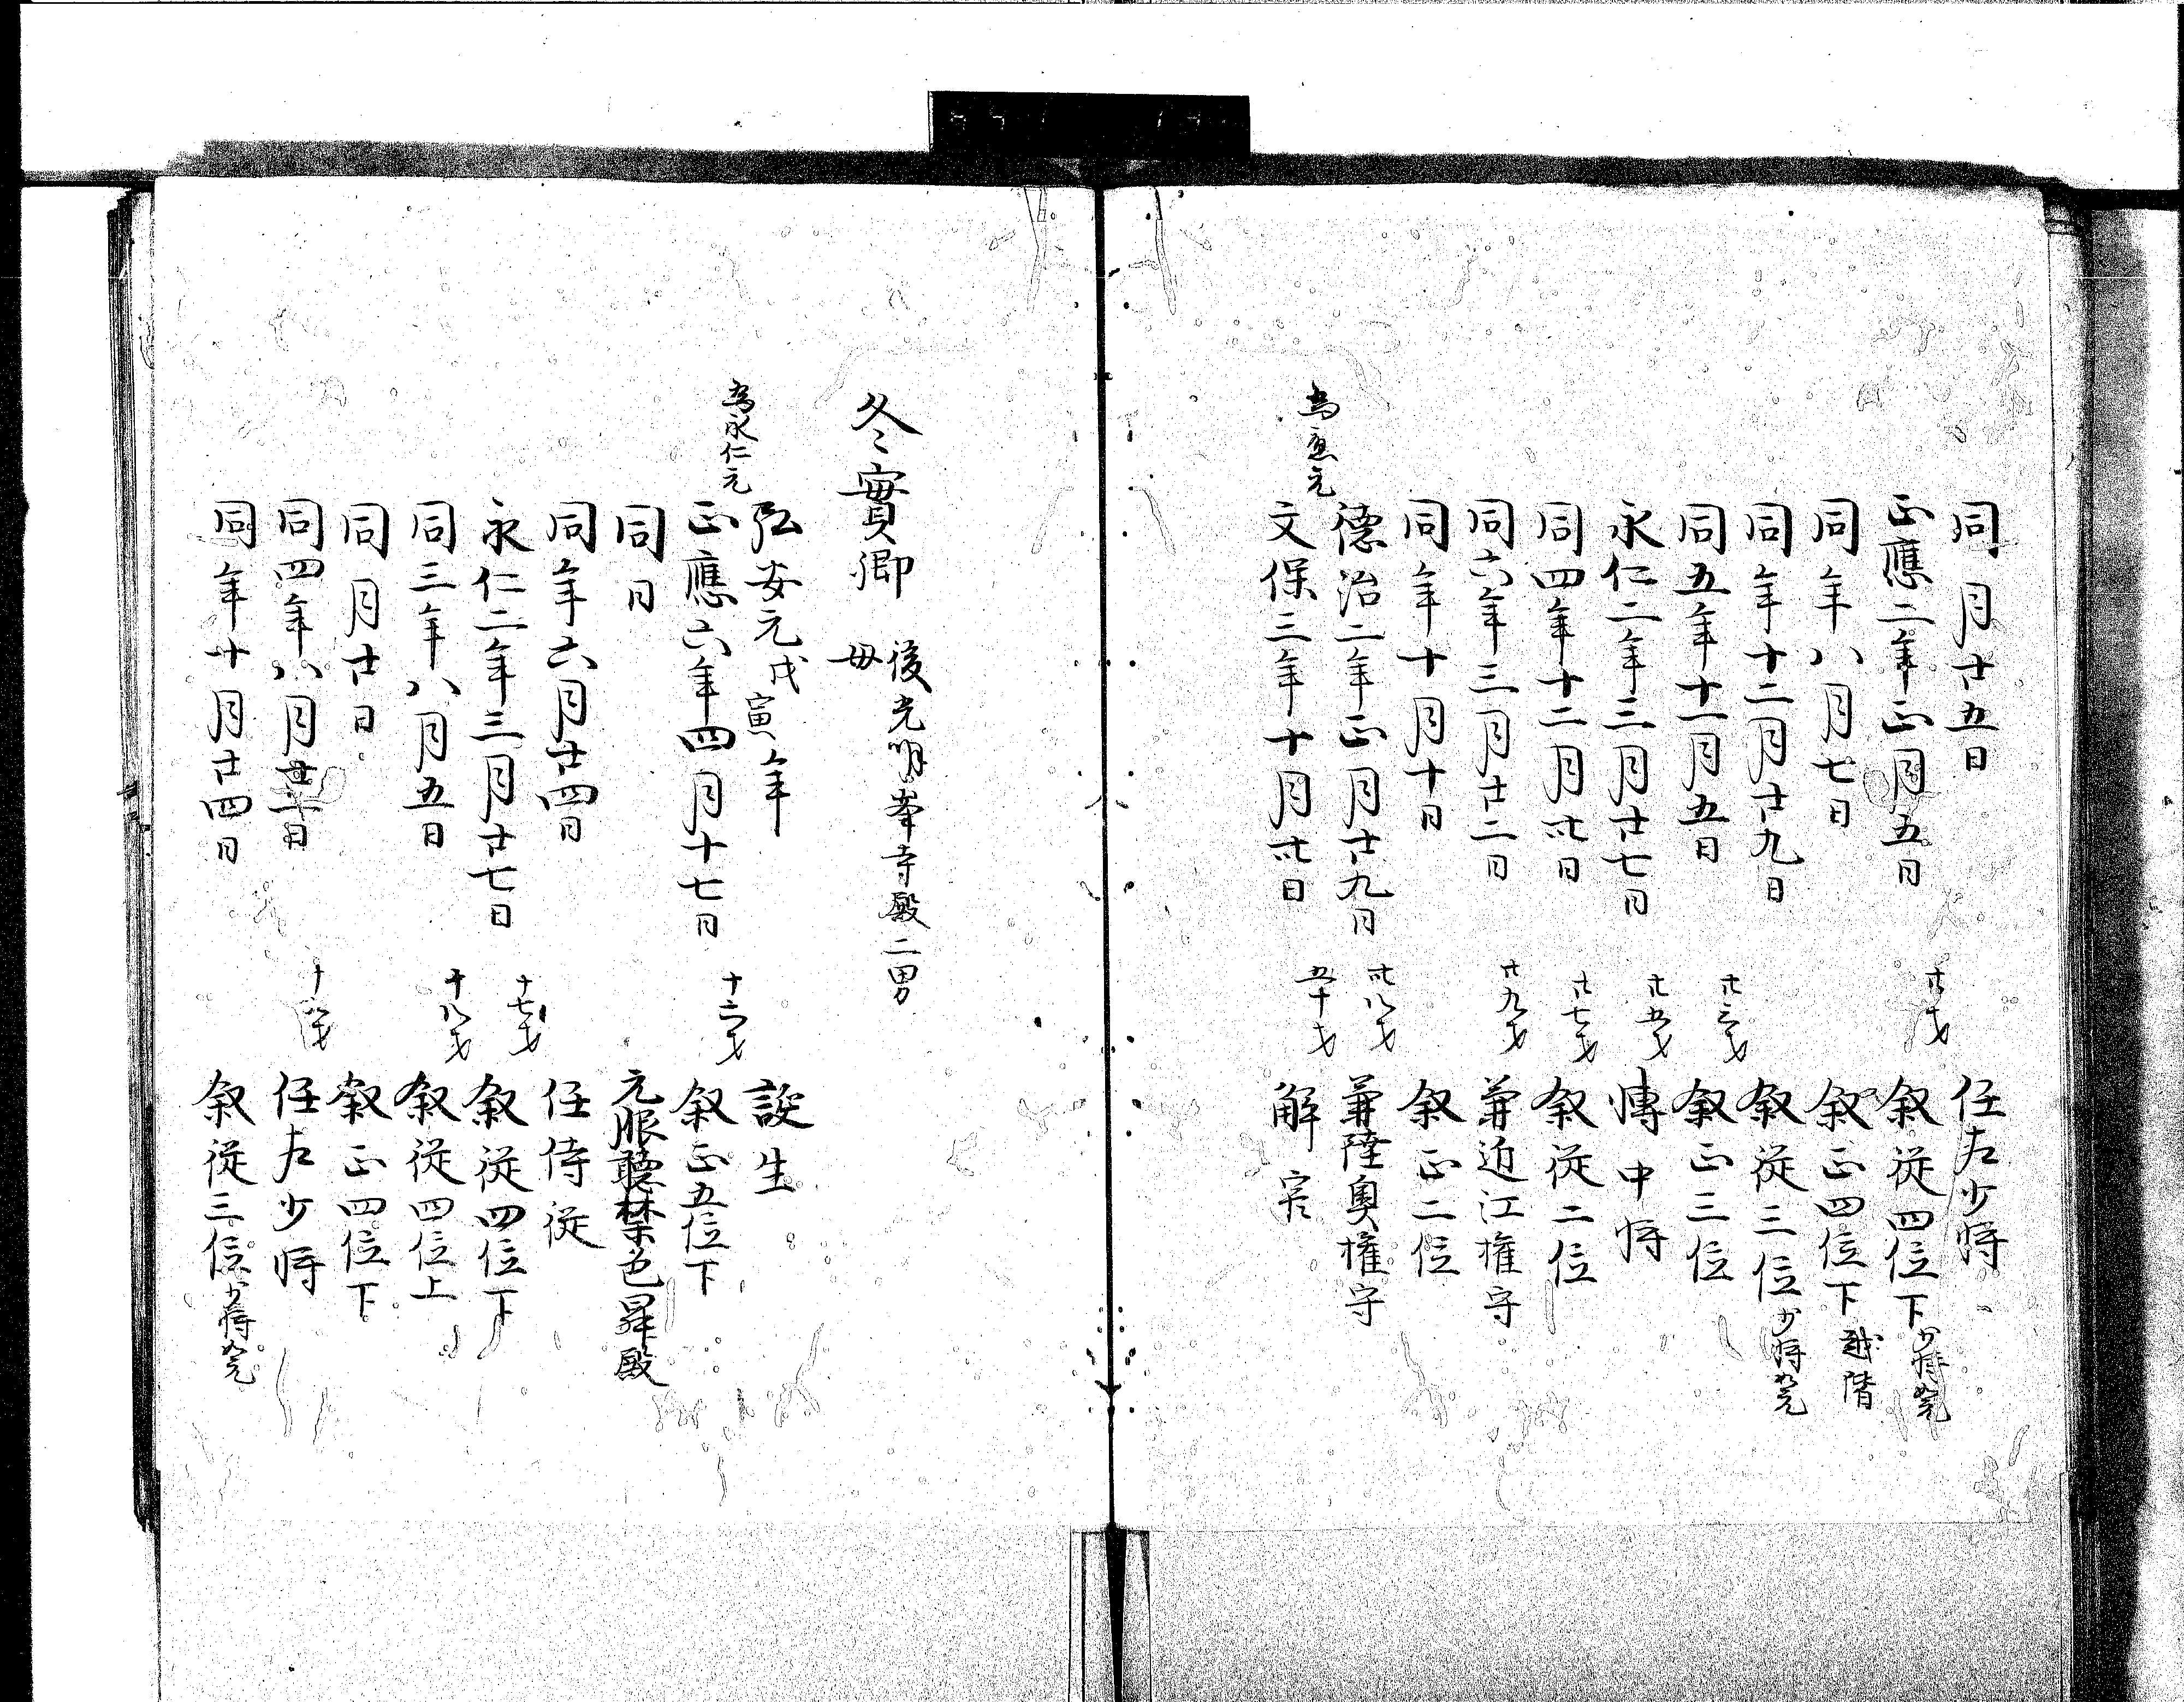 同月廿五日 任左少将
正應二年正月五日 廿才 叙従四位下少将如元
同年八月七日 叙正四位下越階
同年十二月廿九日 叙従三位少将如元
同五年十一月五日 廿三才 叙正三位
永仁二年三月廿七日 廿五才 轉中将
同四年十二月卅日 廿七才 叙従二位
同六年三月廿二日 廿九才 兼近江権守
同年十月十日 叙正二位
為延元
德治二年正月廿九日 卅八才 兼陸奥権守
文保三年十月卅日 五十才 解官
冬實卿 後光明峯寺殿二男
母
弘安元戊寅年 誕生
為永仁元
正應六年四月十七日 十六才 叙正五位下
同日 元服聴禁色昇殿
同年六月廿四日 任侍従
永仁二年三月廿七日 十七才 叙従四位下
同三年八月五日 十八才 叙従四位上
同月廿日 叙正四位下
同四年八月日 任左少将
同年十月廿四日 叙従三位少将如元